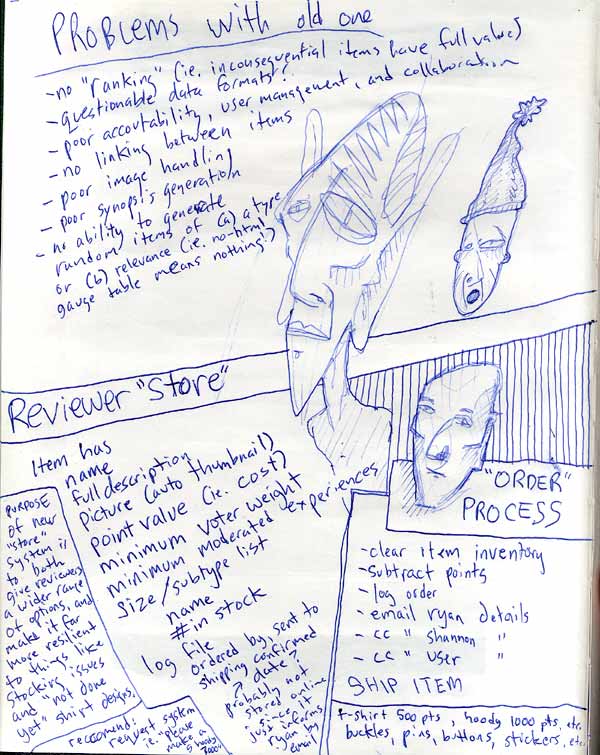 PROBLEMS with old one
- no "ranking" (ie. inconsequential items have full value)
- questionable data formats?
- poor accoutability, user management, and collaboration
- no linking between items
- poor image handling
- poor synopsis generation
- no ability to generate
random items of (a) a type
or (b) relevance (ie. no-html
gauge table means nothing!)
Reviewer "Store"
Item has
name
full description
picture (auto thumbnail)
point value (ie. cost)
minimum voter weight
minimum moderated experiences
size/subtype list
name
# in stock
log file
ordered by, sent to
shipping confirmed
? date?
probably not
stored online
since it
just informs
ryan by
email
PURPOSE
of new
"store"
system is
to both
give reviewers
a wider range
of options, and
make it far
more resilient
to things like
stocking issues
and "not done
yet" shirt designs.
reccomend:
request system
ie. "please
make a
hoody
"ORDER"
PROCESS
- clear item inventory
- subtract points
- log order
- email ryan details
- cc " shannon "
- cc " user "
SHIP ITEM
t-shirt 500 pts, hoody 1000 pts, etc.
buckles, pins, buttons, stickers, etc.